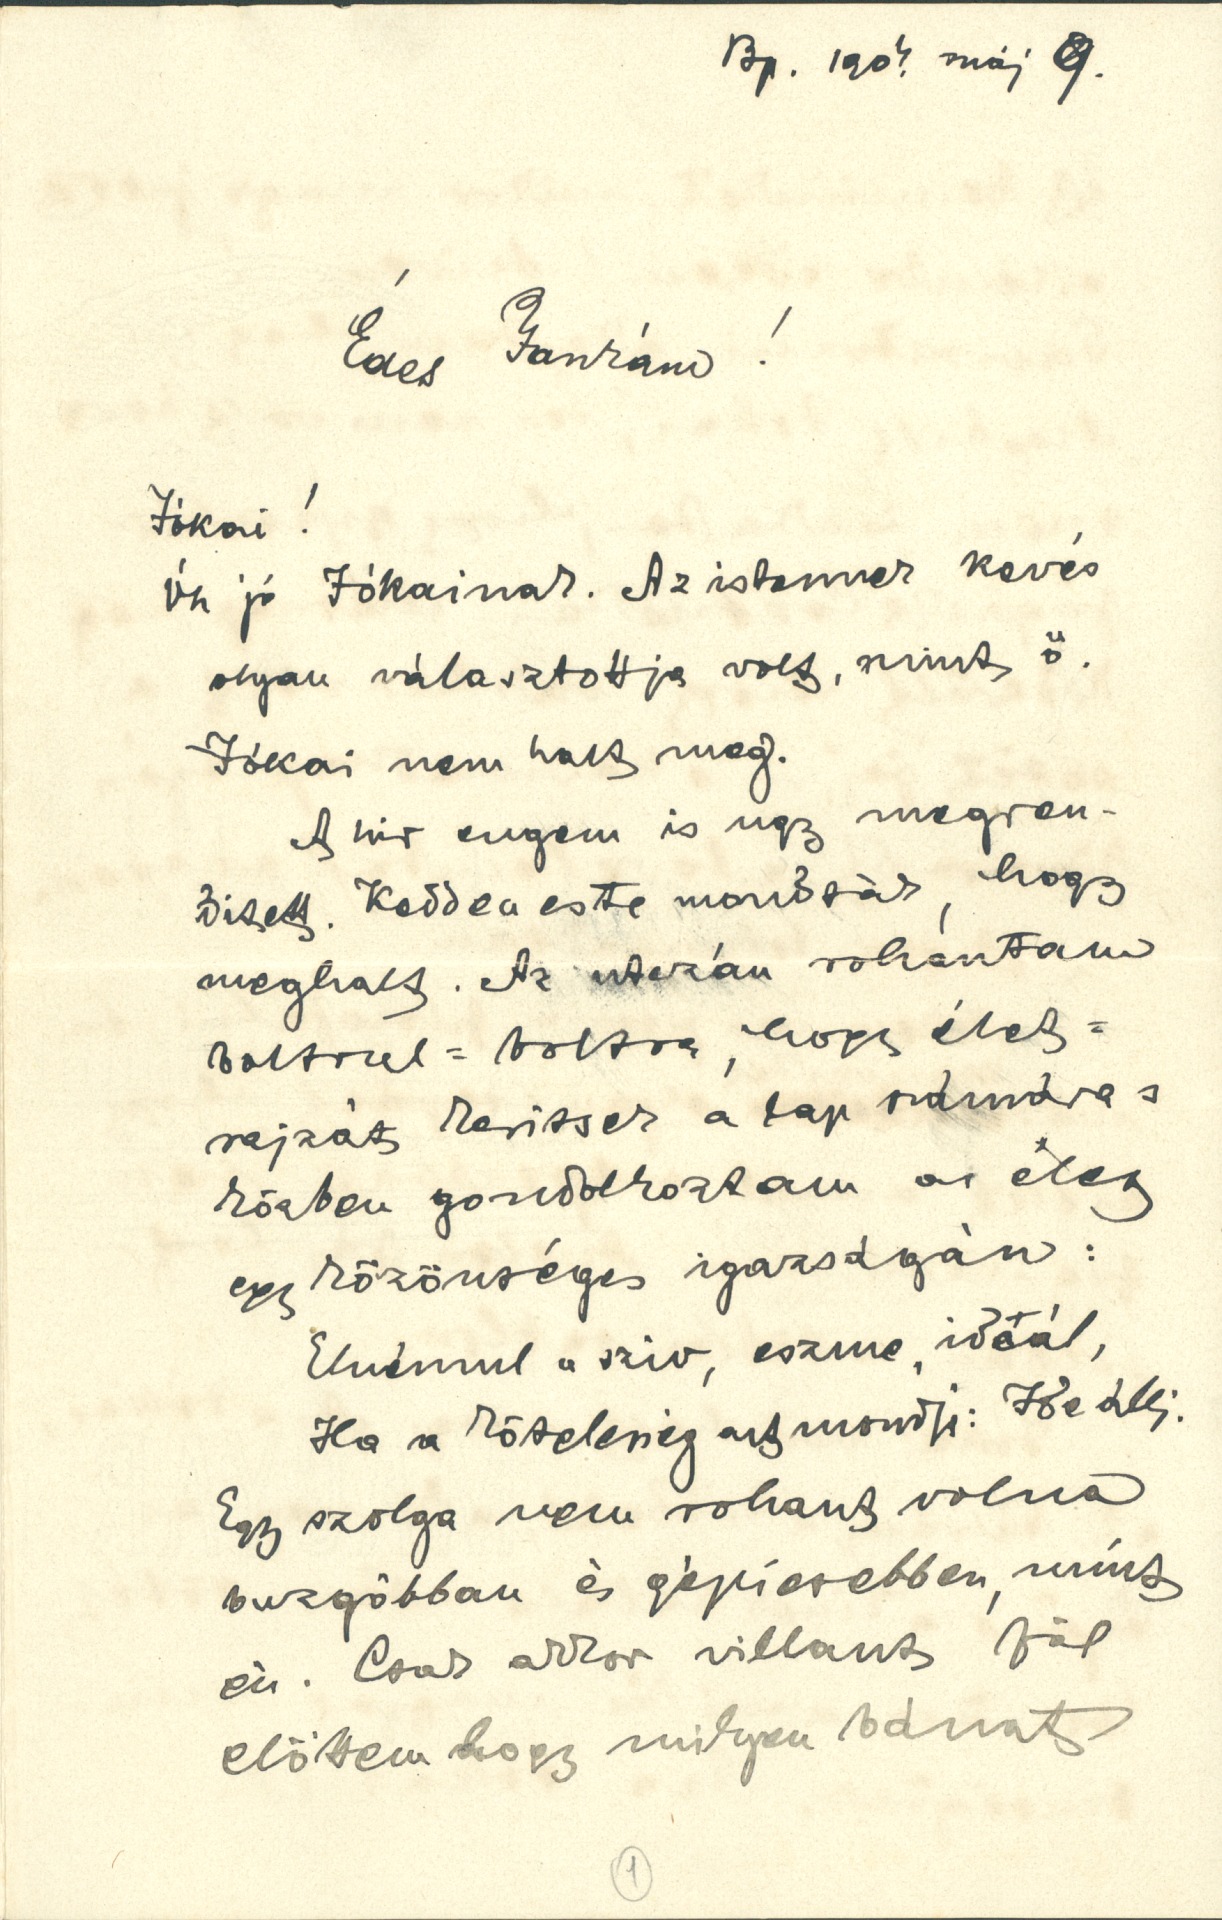 Bp. 1904. máj 9.
Édes Jankám!
Jókai!
Óh jó Jókainak. Az istennek kevés
olyan választottja volt, mint ő.
Jókai nem halt meg.
A hir engem is ugy megren-
ditett. Kedden este mondták, hogy
meghalt. Az utczán rohantam
boltrul=boltra, hogy élet=
rajzát keritsek a lap számára s
közben gondolkoztam az élet
egy közönséges igazságán:
Elnémul a sziv, eszme, ideál,
Ha a kötelesség azt mondja: Ide állj.
Egy szolga nem rohant volna
buzgóbban és gépiesebben, mint
én. Csak akkor villant föl
előttem hogy milyen bánat
1